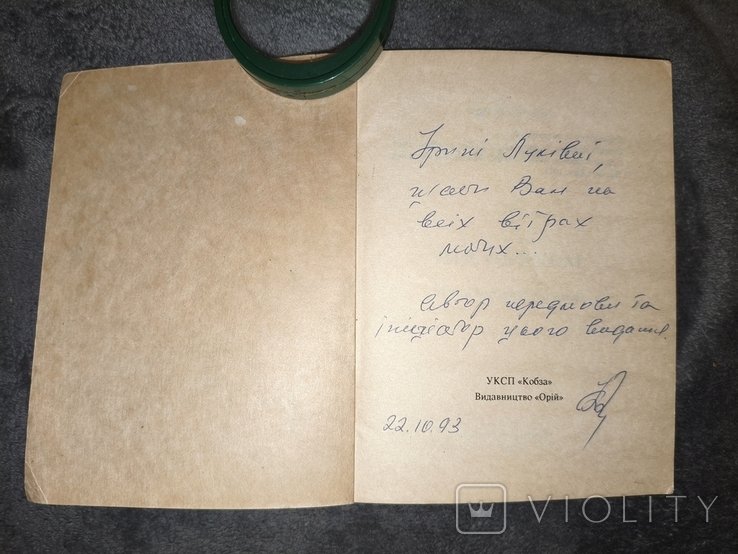 Ірині Луківні,
пісень Вам на
всіх вітрах
людих...
Автор передмови та
ініціатор цього видання.
УКСП «Кобза»
Видавництво «Орій»
22.10.93
VIOLITY